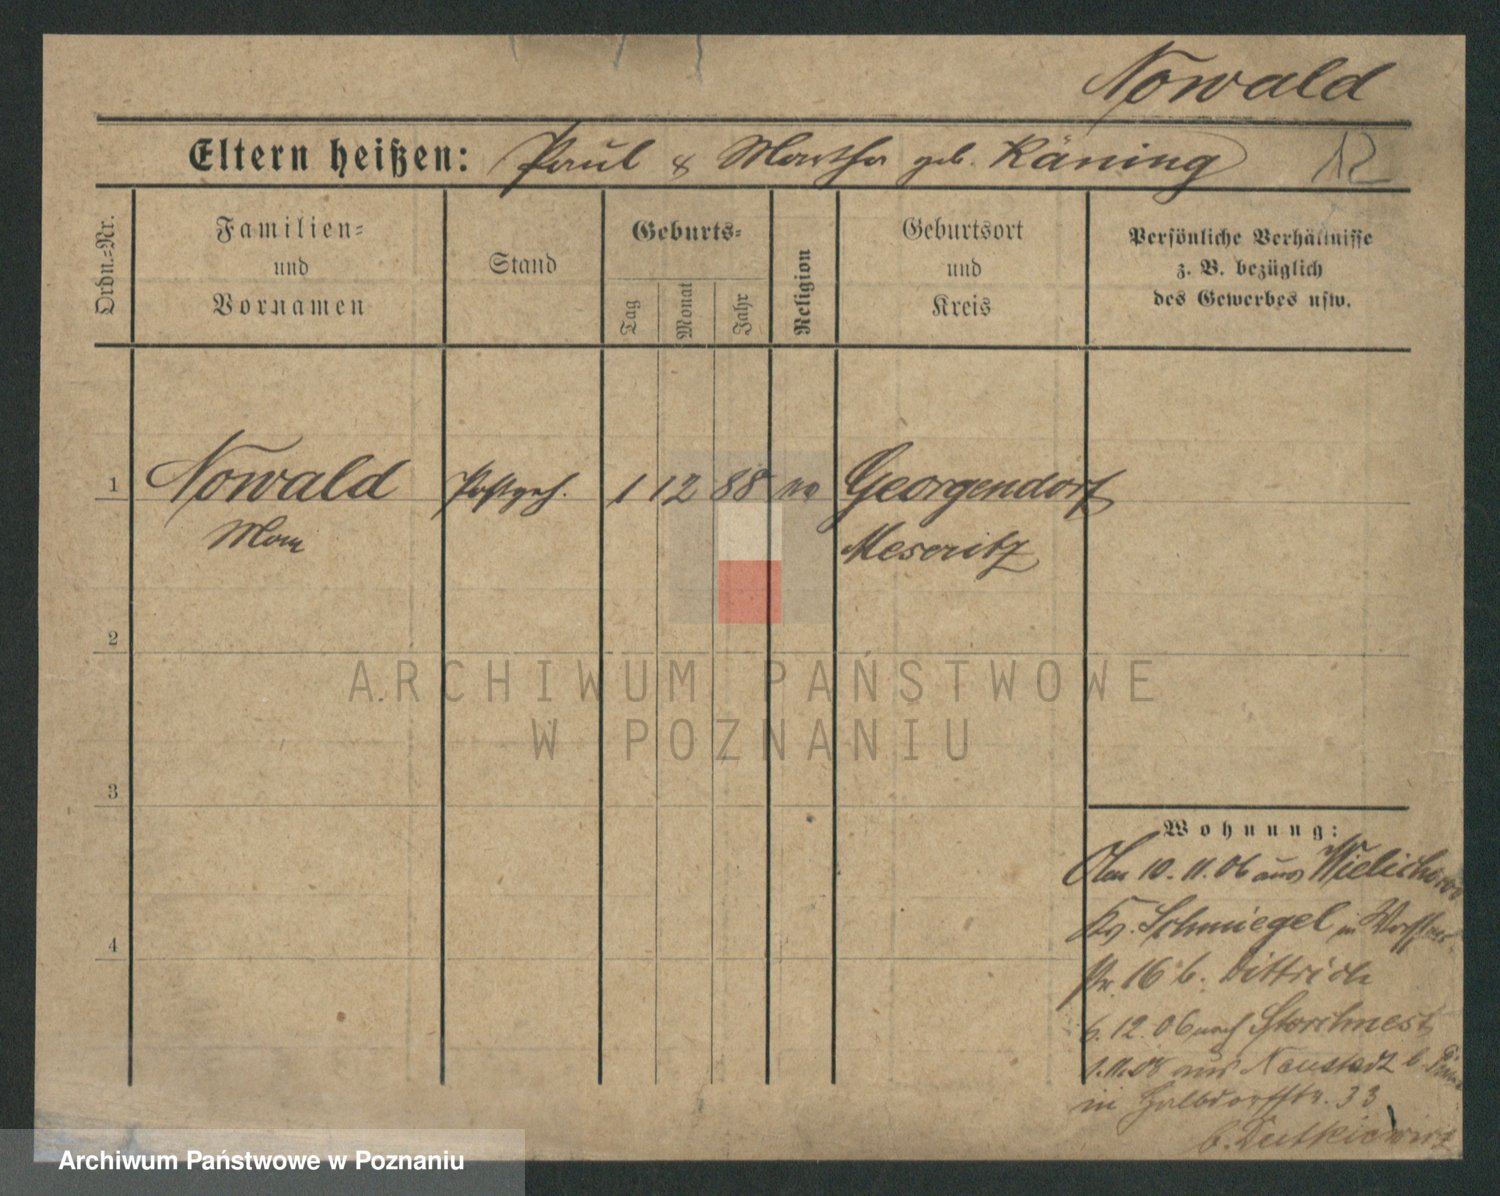 Nowald
Eltern heißen: Paul & Martha geb. Räning
12
Ordn.-Nr.
Familien-
und
Vornamen
Stand
Geburts-
Tag
Monat
Jahr
Religion
Geburtsort
und
Kreis
Persönliche Verhältnisse
z. B. bezüglich
des Gewerbes usw.
1 Nowald Postgeh. 1 12 88 Georgendorf
Max
Meseritz
2
3
4
ARCHIWUM PAŃSTWOWE
W POZNANIU
Wohnung:
10.11.06 aus Wielichowo
Kr. Schmiegel in
16 b. Dittrich
6.12.06 nach Storchnest
1.11.08 aus Neustadt b.
in Halbdorffstr. 33
b. Dutkiewicz
Archiwum Państwowe w Poznaniu